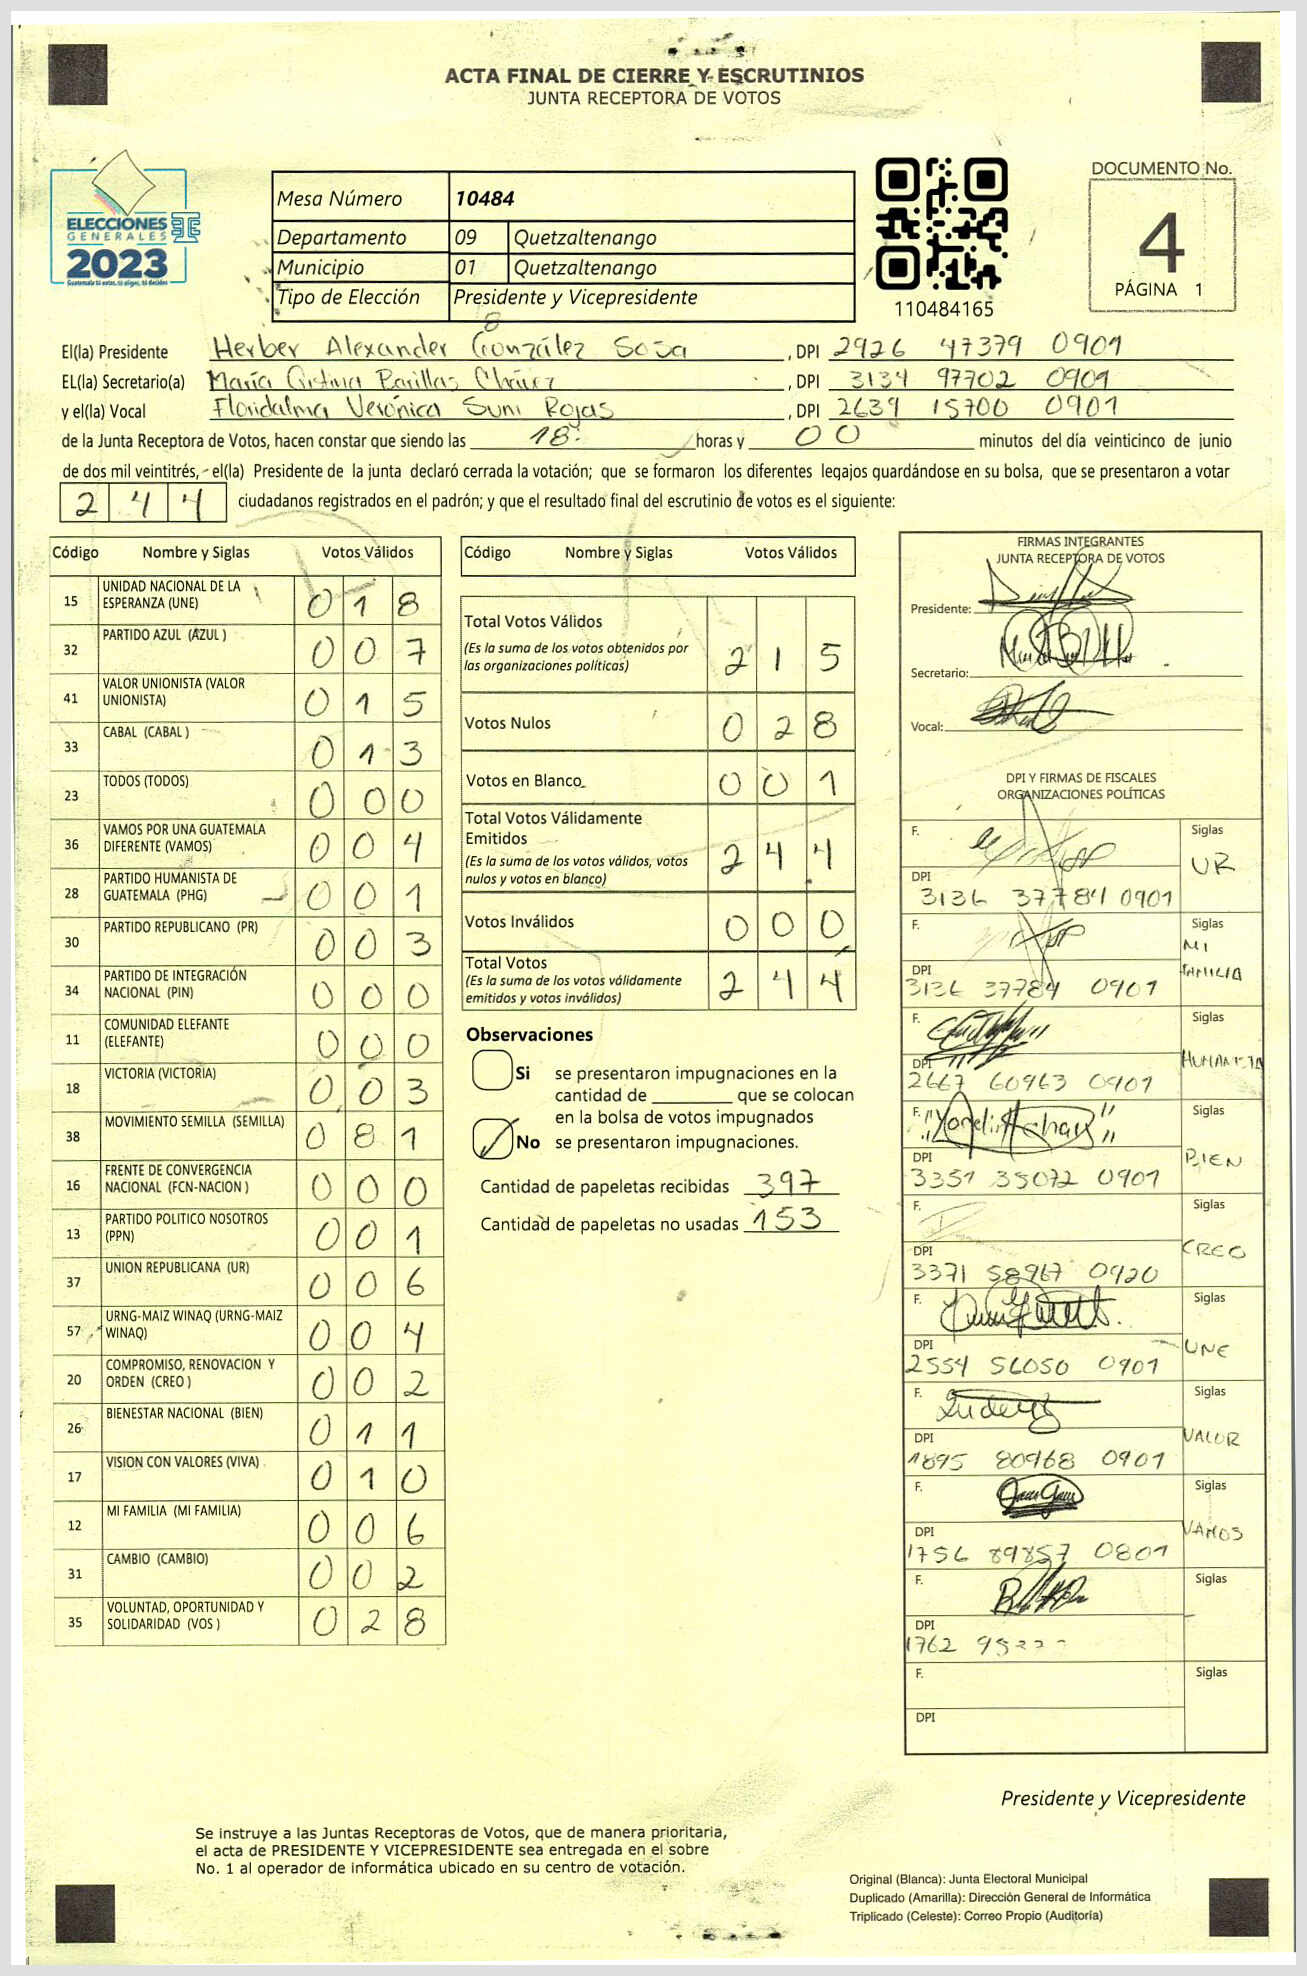 ACTA FINAL DE CIERRE Y ESCRUTINIOS
JUNTA RECEPTORA DE VOTOS
ELECCIONES
GENERALES
2023
Guatemala tú votas, tú eliges, tú decides
Mesa Número 10484
Departamento 09 Quetzaltenango
Municipio 01 Quetzaltenango
Tipo de Elección Presidente y Vicepresidente
110484165
DOCUMENTO No.
4
PÁGINA 1
El(la) Presidente Herber Alexander González Sosa , DPI 2926 47379 0901
EL(la) Secretario(a) María Cristina Barillas Chávez , DPI 3134 97702 0901
y el(la) Vocal Floridalma Verónica Suni Rojas , DPI 2639 15700 0901
de la Junta Receptora de Votos, hacen constar que siendo las 18: horas y 00 minutos del día veinticinco de junio
de dos mil veintitrés, el(la) Presidente de la junta declaró cerrada la votación; que se formaron los diferentes legajos guardándose en su bolsa, que se presentaron a votar
244 ciudadanos registrados en el padrón; y que el resultado final del escrutinio de votos es el siguiente:
Código Nombre y Siglas Votos Válidos
15 UNIDAD NACIONAL DE LA ESPERANZA (UNE) 018
32 PARTIDO AZUL (AZUL ) 007
41 VALOR UNIONISTA (VALOR UNIONISTA) 015
33 CABAL (CABAL ) 013
23 TODOS (TODOS) 000
36 VAMOS POR UNA GUATEMALA DIFERENTE (VAMOS) 004
28 PARTIDO HUMANISTA DE GUATEMALA (PHG) 001
30 PARTIDO REPUBLICANO (PR) 003
34 PARTIDO DE INTEGRACIÓN NACIONAL (PIN) 000
11 COMUNIDAD ELEFANTE (ELEFANTE) 000
18 VICTORIA (VICTORIA) 003
38 MOVIMIENTO SEMILLA (SEMILLA) 081
16 FRENTE DE CONVERGENCIA NACIONAL (FCN-NACION ) 000
13 PARTIDO POLITICO NOSOTROS (PPN) 001
37 UNION REPUBLICANA (UR) 006
57 URNG-MAIZ WINAQ (URNG-MAIZ WINAQ) 004
20 COMPROMISO, RENOVACION Y ORDEN (CREO ) 002
26 BIENESTAR NACIONAL (BIEN) 011
17 VISION CON VALORES (VIVA) 010
12 MI FAMILIA (MI FAMILIA) 006
31 CAMBIO (CAMBIO) 002
35 VOLUNTAD, OPORTUNIDAD Y SOLIDARIDAD (VOS ) 028
Código Nombre y Siglas Votos Válidos
Total Votos Válidos 215
(Es la suma de los votos obtenidos por
las organizaciones políticas)
Votos Nulos 028
Votos en Blanco 001
Total Votos Válidamente
Emitidos 244
(Es la suma de los votos válidos, votos
nulos y votos en blanco)
Votos Inválidos 000
Total Votos 244
(Es la suma de los votos válidamente
emitidos y votos inválidos)
Observaciones
Si se presentaron impugnaciones en la
cantidad de ________ que se colocan
en la bolsa de votos impugnados
No se presentaron impugnaciones.
Cantidad de papeletas recibidas 397
Cantidad de papeletas no usadas 153
FIRMAS INTEGRANTES
JUNTA RECEPTORA DE VOTOS
Presidente:
Secretario:
Vocal:
DPI Y FIRMAS DE FISCALES
ORGANIZACIONES POLÍTICAS
F. Siglas UR
DPI 3136 37784 0901
F. Siglas MI FAMILIA
DPI 3136 37784 0901
F. Siglas HUMANISTA
DPI 2667 60963 0901
F. Siglas BIEN
DPI 3351 35072 0901
F. Siglas CREO
DPI 3371 58967 0920
F. Siglas UNE
DPI 2554 56050 0901
F. Siglas VALOR
DPI 1895 80968 0901
F. Siglas VAMOS
DPI 1756 89857 0801
F. Siglas
DPI 1762
F. Siglas
DPI
Presidente y Vicepresidente
Se instruye a las Juntas Receptoras de Votos, que de manera prioritaria,
el acta de PRESIDENTE Y VICEPRESIDENTE sea entregada en el sobre
No. 1 al operador de informática ubicado en su centro de votación.
Original (Blanca): Junta Electoral Municipal
Duplicado (Amarilla): Dirección General de Informática
Triplicado (Celeste): Correo Propio (Auditoría)